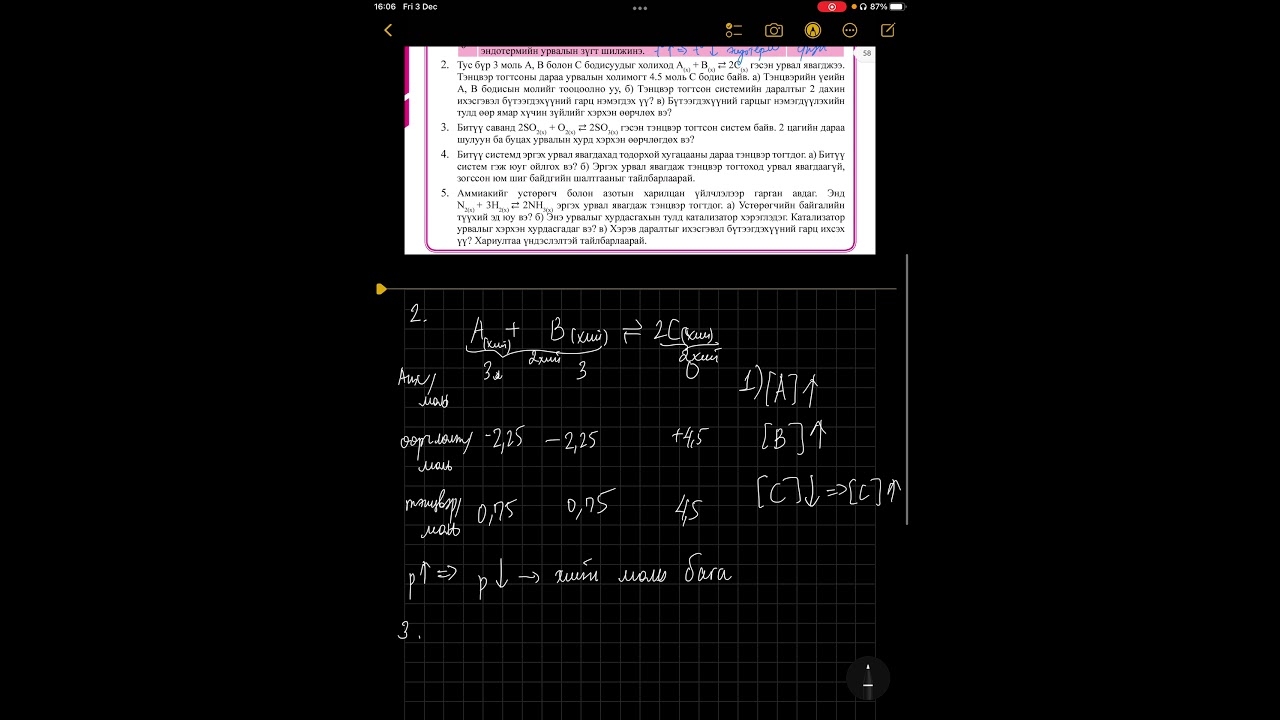 16:06 Fri 3 Dec
87%
эндотермийн урвалын зүгт шилжинэ.
58
2. Тус бүр 3 моль A, B болон C бодисуудыг холиход A(х) + B(х) ⇄ 2C(х) гэсэн урвал явагджээ.
Тэнцвэр тогтсоны дараа урвалын холимогт 4.5 моль C бодис байв. а) Тэнцвэрийн үеийн
A, B бодисын молийг тооцоолно уу, б) Тэнцвэр тогтсон системийн даралтыг 2 дахин
ихэсгэвэл бүтээгдэхүүний гарц нэмэгдэх үү? в) Бүтээгдэхүүний гарцыг нэмэгдүүлэхийн
тулд өөр ямар хүчин зүйлийг хэрхэн өөрчлөх вэ?
3. Битүү саванд 2SO2(х) + O2(х) ⇄ 2SO3(х) гэсэн тэнцвэр тогтсон систем байв. 2 цагийн дараа
шулуун ба буцах урвалын хурд хэрхэн өөрчлөгдөх вэ?
4. Битүү системд эргэх урвал явагдахад тодорхой хугацааны дараа тэнцвэр тогтдог. а) Битүү
систем гэж юуг ойлгох вэ? б) Эргэх урвал явагдаж тэнцвэр тогтоход урвал явагдаагүй,
зогссон юм шиг байдгийн шалтгааныг тайлбарлаарай.
5. Аммиакийг устөрөгч болон азотын харилцан үйлчлэлээр гарган авдаг. Энд
N2(х) + 3H2(х) ⇄ 2NH3(х) эргэх урвал явагдаж тэнцвэр тогтдог. а) Устөрөгчийн байгалийн
түүхий эд юу вэ? б) Энэ урвалыг хурдасгахын тулд катализатор хэрэглэдэг. Катализатор
урвалыг хэрхэн хурдасгадаг вэ? в) Хэрэв даралтыг ихэсгэвэл бүтээгдэхүүний гарц ихсэх
үү? Хариултаа үндэслэлтэй тайлбарлаарай.
2.
A(хий) + B(хий) ⇄ 2C(хий)
2хий 2хий
Анх/моль 3м 3 0
өөрчлөлт/моль -2,25 -2,25 +4,5
тэнцвэр/моль 0,75 0,75 4,5
1) [A]↑
[B]↑
[C]↓ ⇒ [C]↑
p↑ ⇒ p↓ → хийн моль бага
3.